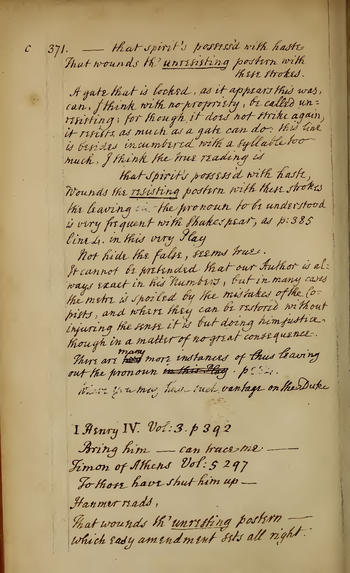 c 371. —— that spirit's possess'd with haste
That wounds th' unresisting postern with
these strokes.
A gate that is locked, as it appears this was,
can, I think with no propriety, be called un-
resisting; for though it does not strike again,
it resists as much as a gate can do. this line
is besides incumbered with a syllable too
much. I think the true reading is
that spirit's possess'd with haste,
Wounds the resisting postern with these strokes
the leaving the pronoun to be understood
is very frequent with Shakespear, as p: 385
line 4. in this very Play
Not hide the false, seems true.
It cannot be pretended that our Author is al-
ways exact in his Numbers, but in many cases
the metre is spoiled by the mistakes of the Co-
pists, and where they can be restored without
injuring the sense it is but doing him justice,
though in a matter of no great consequence.
There are many more instances of thus leaving
out the pronoun in this Play. p:
Where you may have such vantage on the Duke
I Henry IV. Vol: 3. p 392
Bring him — can trace me ——
Timon of Athens Vol: 5 297
To those have shut him up —
Hanmer reads,
That wounds th' unresting postern ——
which easy amendment sets all right.